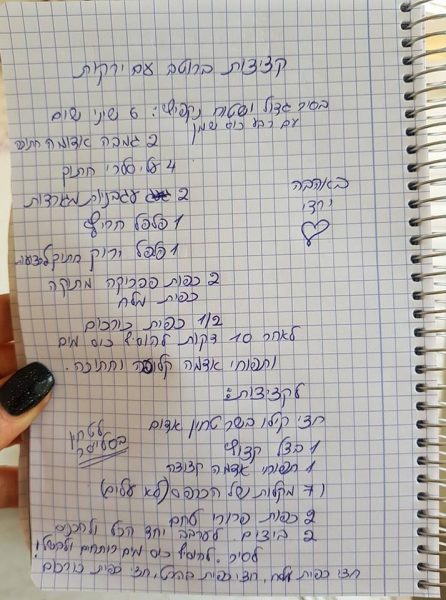 קציצות ברוטב עם ירקות
בסיר גדול ושטוח נקפיץ: 6 שיני שום
עם רבע כוס שמן
2 גמבה אדומה חתוכה
4 עלי סלרי חתוך
2 עגבניות מגורדות
1 פלפל חריף
1 פלפל ירוק חתוך לרצועות
2 כפות פפריקה מתוקה
כפית מלח
1/2 כפית כורכום
לאחר 10 דקות להוסיף כוס מים
ותפוחי אדמה קלופה וחתוכה.
באהבה
ירדי
לקציצות:
חצי קילו בשר טחון אדום
1 בצל קצוץ
1 תפוחי אדמה קצוצה
ו 7 מקלות של הכרפס (לא עלים)
לטחון
בסלייסר
2 כפות פרורי לחם
2 ביצים. לערבב יחד הכל ולהכניס
לסיר. להוסיף כוס מים רותחים ולבשל!
חצי כפית מלח, חצי כפית בהרט, חצי כפית כורכום